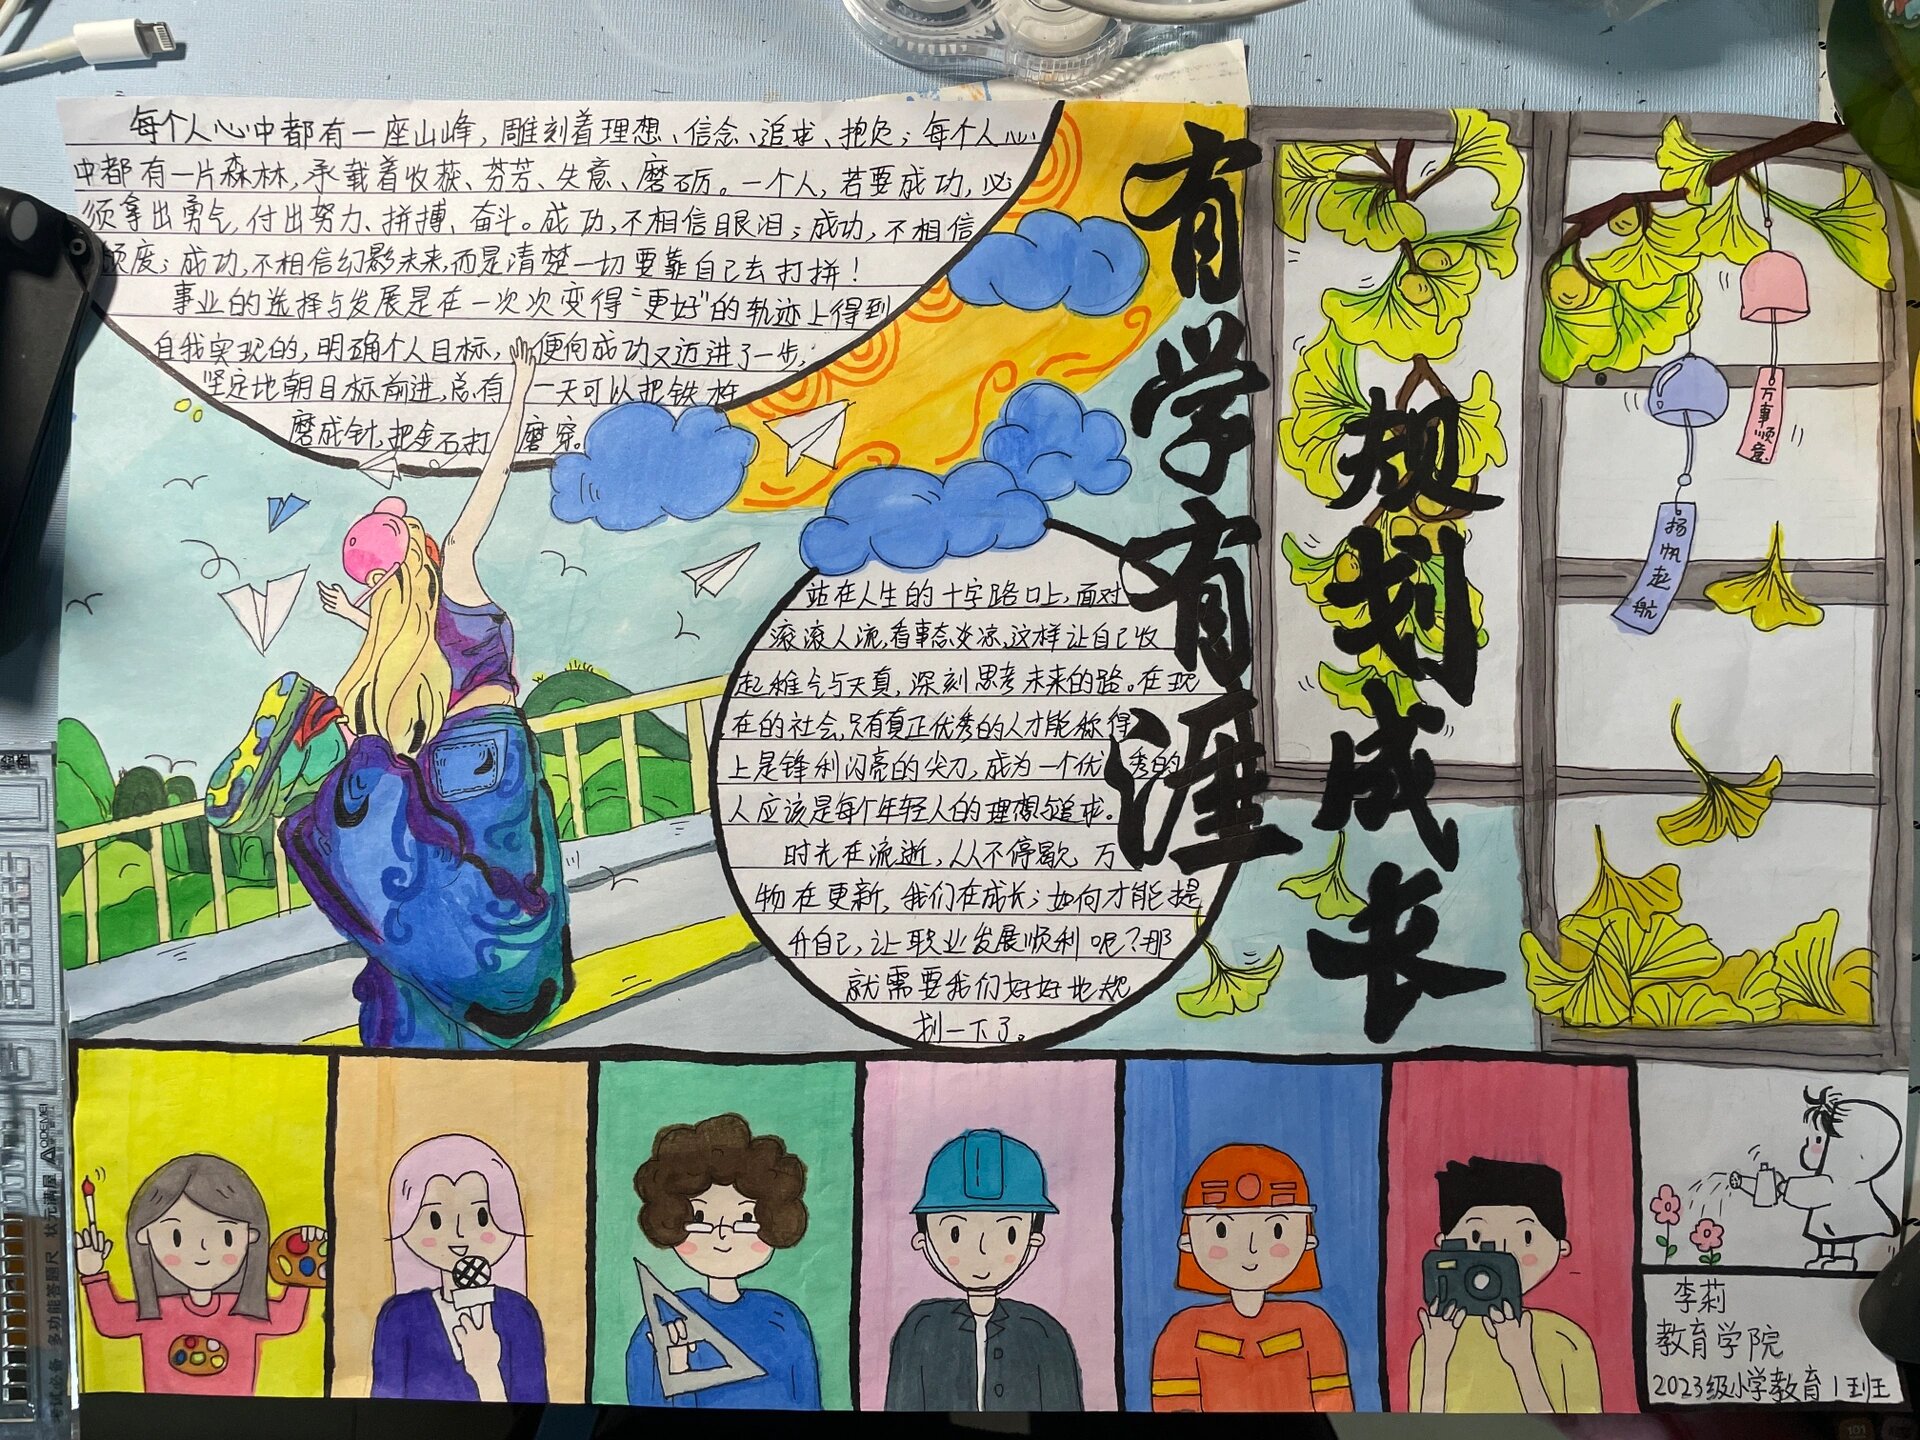 每个人心中都有一座山峰，雕刻着理想、信念、追求、抱负；每个人心
中都有一片森林，承载着收获、芬芳、失意、磨砺。一个人，若要成功，必
须拿出勇气，付出努力、拼搏、奋斗。成功，不相信眼泪；成功，不相信
颓废；成功，不相信幻影未来，而是清楚一切要靠自己去打拼！
事业的选择与发展是在一次次变得“更好”的轨迹上得到
自我实现的，明确个人目标，便向成功又迈进了一步；
坚定地朝目标前进，总有一天可以把铁杵
磨成针，把金石打磨穿。
有学有涯
规划成长
万事顺意
扬帆起航
站在人生的十字路口上，面对
滚滚人流，看事态炎凉，这样让自己收
起稚气与天真，深刻思考未来的路。在现
在的社会，只有真正优秀的人才能称得
上是锋利闪亮的尖刀，成为一个优秀的
人应该是每个年轻人的理想与追求。
时光在流逝，从不停歇，万
物在更新，我们在成长；如何才能提
升自己，让职业发展顺利呢？那
就需要我们好好地规
划一下了。
李莉
教育学院
2023级小学教育1班
状元满屋 多功能答题尺